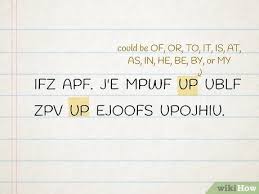 could be OF, OR, TO, IT, IS, AT,
AS, IN, HE, BE, BY, or MY
IFZ APF. J'E MPWF UP UBLF
ZPV UP EJOOFS UPOJHIU.
wikiHow